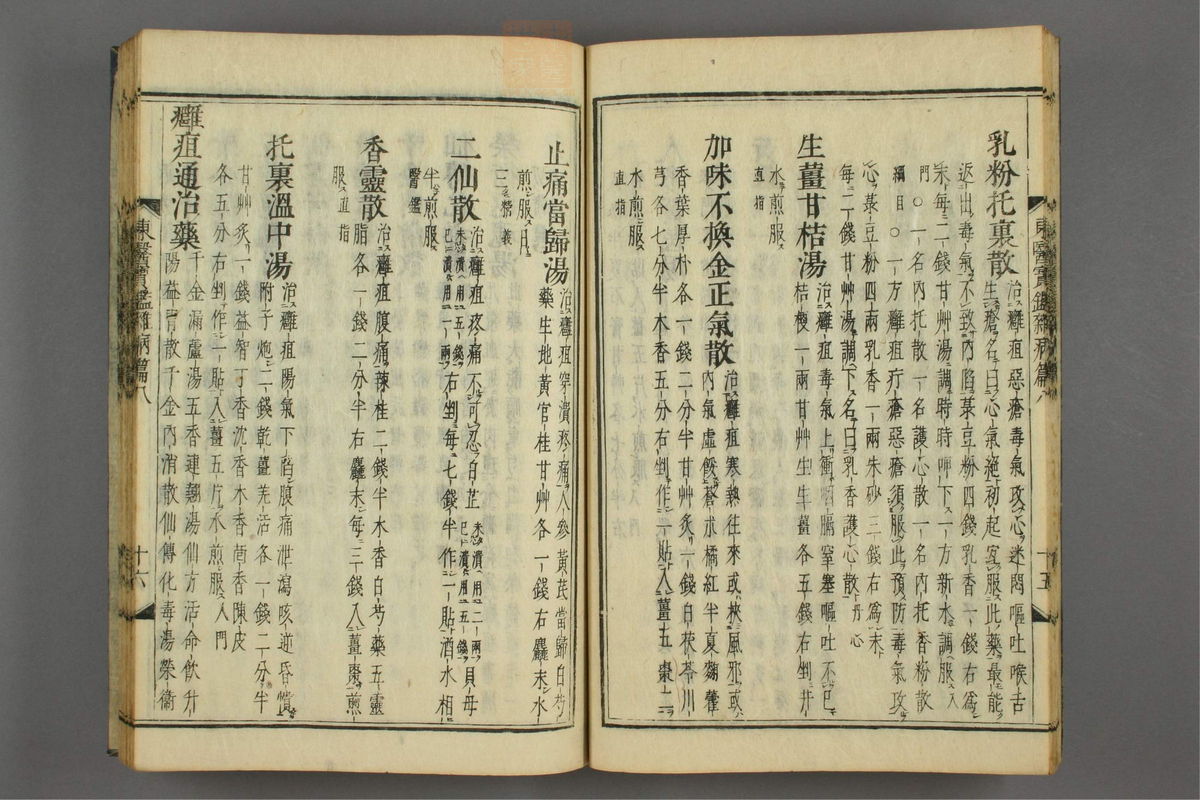 乳粉托裏散治癰疽惡瘡毒氣攻心迷悶嘔吐喉舌
生瘡名曰心氣絶初起宜服此藥最能
返出毒氣不致內陷菉豆粉四錢乳香一錢右爲
末每二錢甘艸湯調時時呷下一方新水調服入
門〇一名內托散一名護心散一名內托香粉散
綱目〇一方癰疽疔瘡惡瘡須服此預防毒氣攻
心菉豆粉四兩乳香一兩朱砂三錢右爲末
每二錢甘艸湯調下名曰乳香護心散丹心
生薑甘桔湯治癰疽毒氣上衝咽膈窒塞嘔吐不已
桔梗一兩甘艸生生薑各五錢右剉井
水煎服
直指
加味不換金正氣散治癰疽寒熱往來或挾風邪或
內氣虛餒蒼朮橘紅半夏麴藿
香葉厚朴各一錢二分半甘艸炙一錢白茯苓川
芎各七分半木香五分右剉作一貼入薑五棗二
水煎服
直指
東醫寶鑑雜病篇
十五
止痛當歸湯治癰疽穿潰疼痛人參黃芪當歸白芍
藥生地黃官桂甘艸各一錢右麤末水
煎服日
三
二仙散治癰疽疼痛不可忍白芷未潰用二兩已潰用五錢貝母
未潰用五錢已潰用一兩右剉每七錢半作一貼酒水相
半煎服
醫鑑
香靈散治癰疽腹痛辣桂二錢半木香白芍藥五靈
脂各一錢二分半右麤末每三錢入薑棗煎
服直指
托裏溫中湯治癰疽陽氣下陷腹痛泄瀉咳逆昏憒
附子炮二錢乾薑羌活各一錢二分半
甘艸炙一錢益智丁香沈香木香茴香陳皮
各五分右剉作一貼入薑五片水煎服入門
癰疽通治藥千金漏蘆湯五香連翹湯仙方活命飲升
陽益胃散千金內消散仙傳化毒湯榮衞
東醫寶鑑雜病篇八
十六